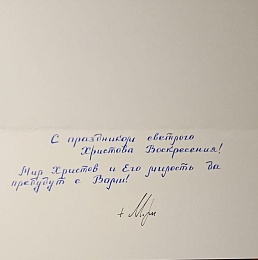 С праздником светлого
Христова Воскресения!
Мир Христов и Его милость да
пребудут с Вами!
+